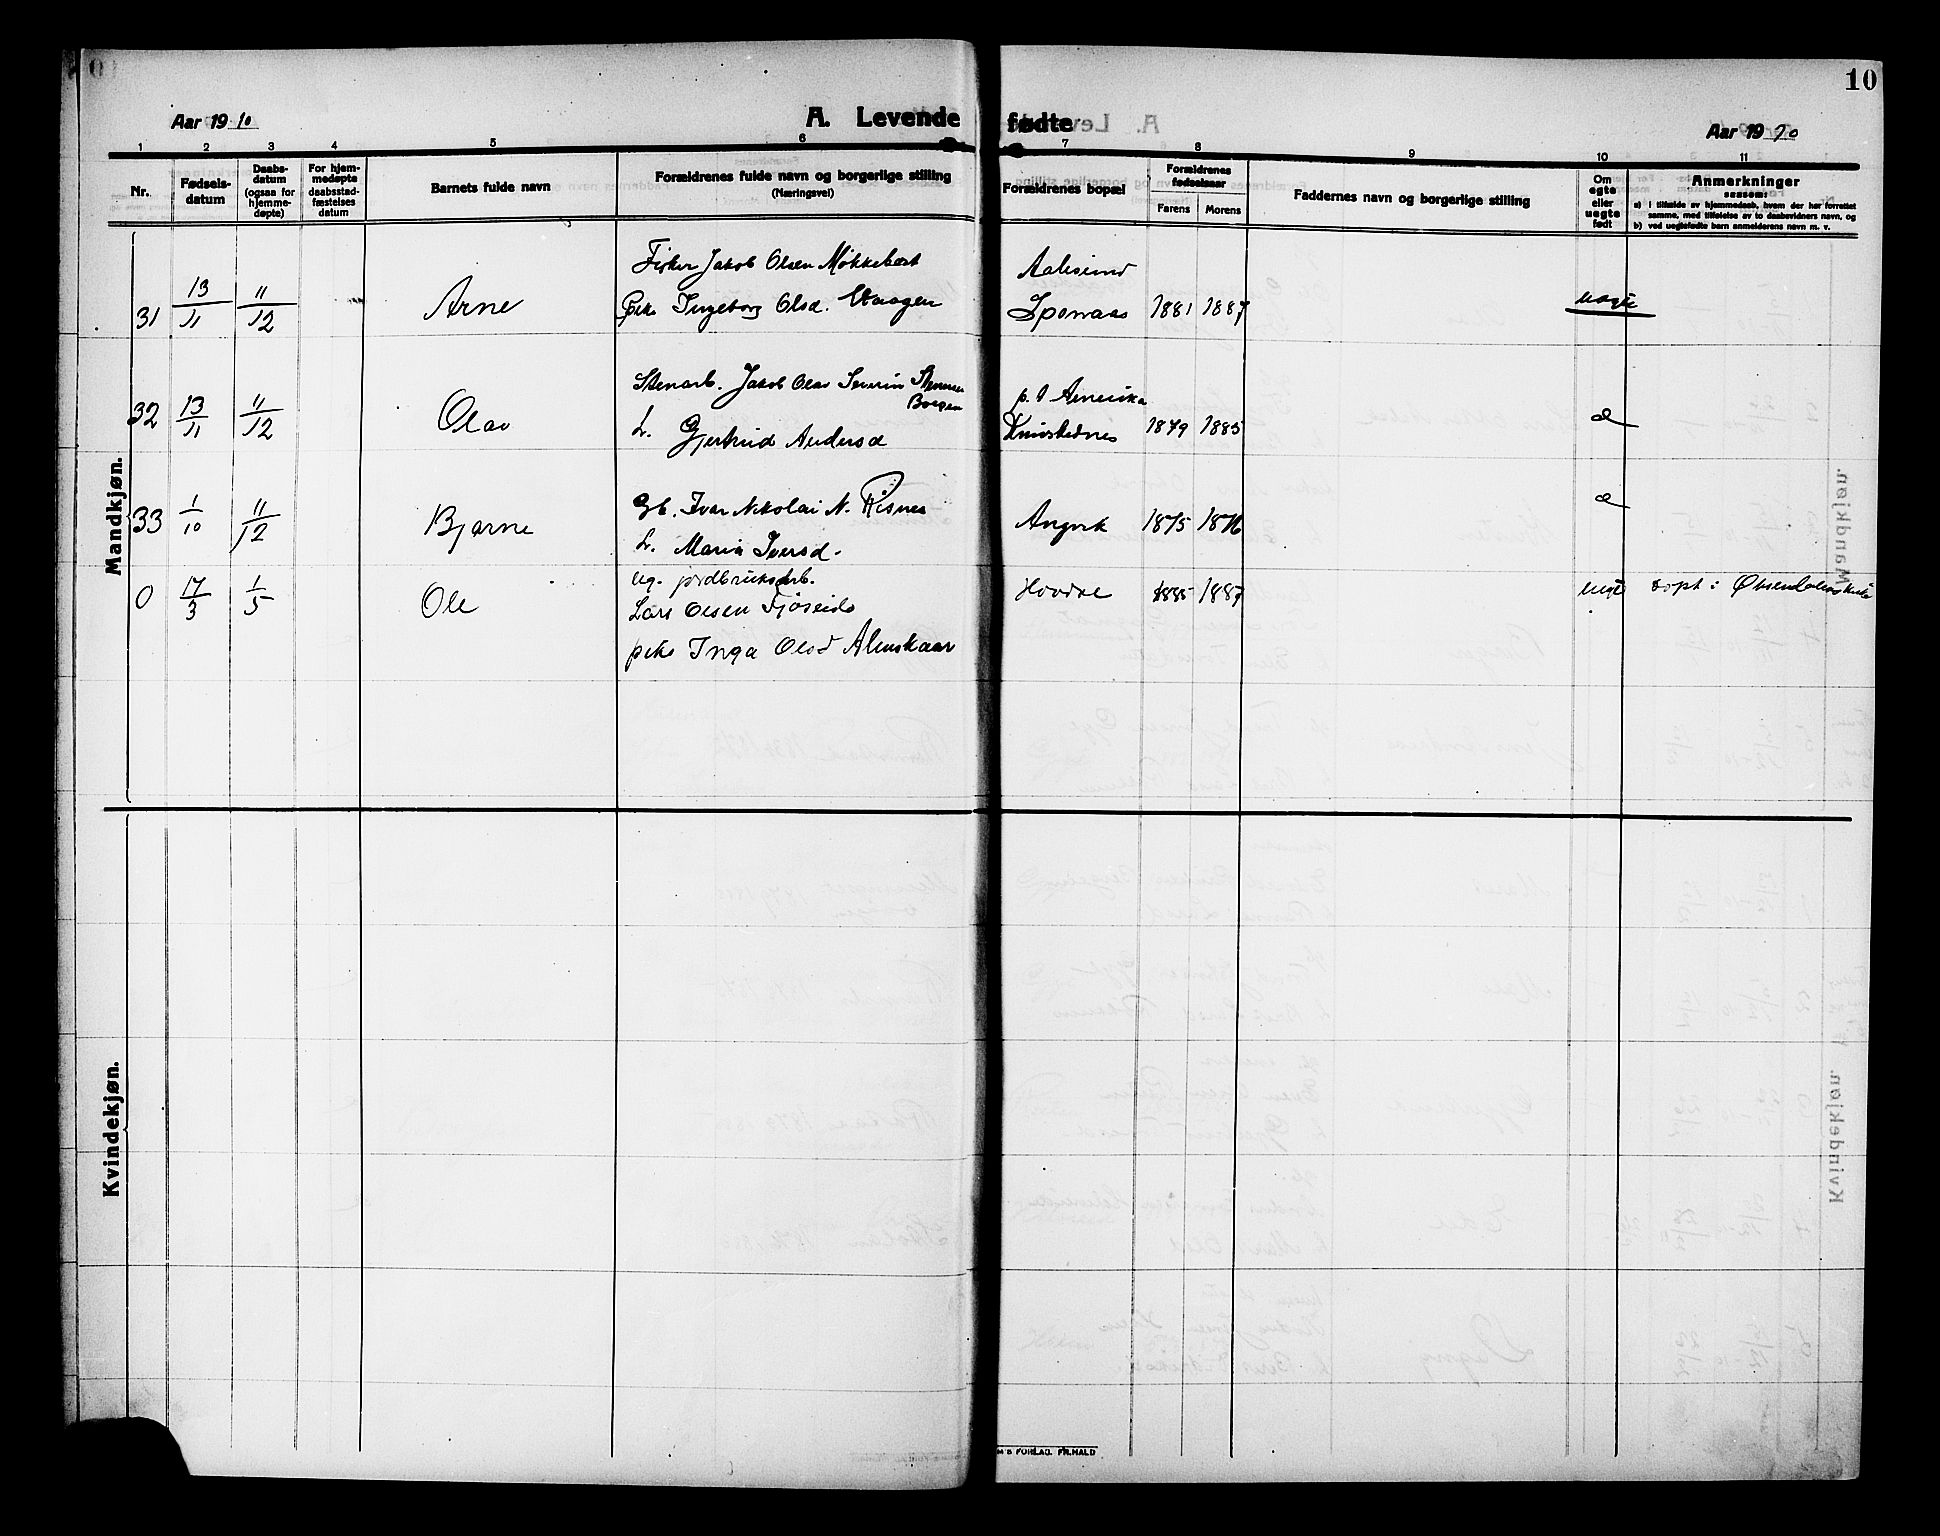 10
Aar 1910
A. Levende fødte
Aar 1910
1 2 3 4 5 6 7 8 9 10 11
Nr.
Fødsels-
datum
Daabs-
datum
(ogsaa for
hjemme-
døpte)
For hjem-
medøpte
daabsstad-
fæstelses
datum
Barnets fulde navn
Forældrenes fulde navn og borgerlige stilling
(Næringsvei)
Forældrenes bopæl
Forældrenes
fødselsaar
Farens Morens
Faddernes navn og borgerlige stilling
Om
egte
eller
uegte
født
Anmerkninger
saasom:
a) i tilfælde av hjemmedaab, hvem der har forrettet
samme, med tilføielse av to daabsvidners navn, og
b) ved uegtefødte barn anmelderens navn m. v.
Mandkjøn.
Fisker Jakob Olsen Mökkebost Aalesund
31 13/11 11/12 Arne Pike Ingeborg Olsd. Vaagen 1881 1887 uegte
Stenarb. Jakob Olav Severin
Borgen p. t Amerika
32 13/11 11/12 Olav L. Gjertrud Andersd 1879 1885 e
Gb. Ivar Nikolai N. Risnes e
33 1/10 11/12 Bjarne Angvik 1875 1876
L. Maria Iversd.
ug.
0 17/3 1/5 Ole Lars Olsen Fjöseide 1885 1887 uegt
pike Inga Olsd
Kvindekjøn.
FORLAG. FR.HALD